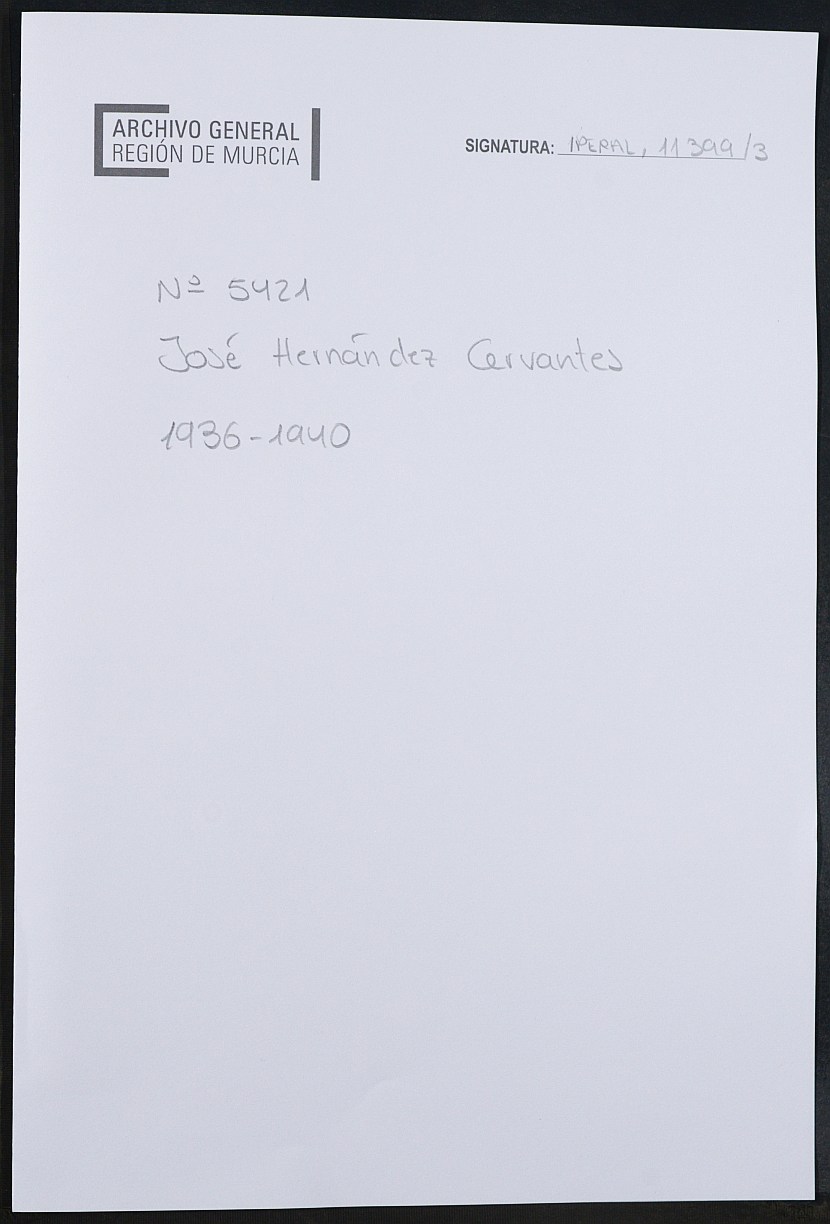 ARCHIVO GENERAL
REGIÓN DE MURCIA
SIGNATURA: IPERAL, 11399/3
Nº 5421
José Hernández Cervantes
1936-1940